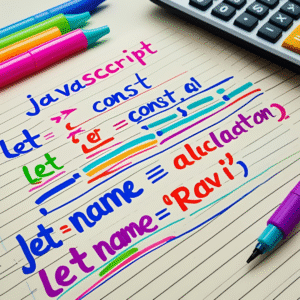 javasccript
let= const
let ler =const, al
Jet=name = alucladton)
Let name='Ravi')